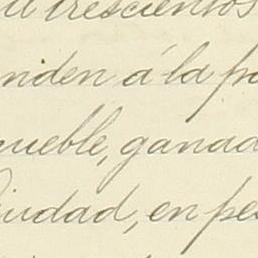 trescientos
nden á la p
mueble, ganad
Ciudad, en pes